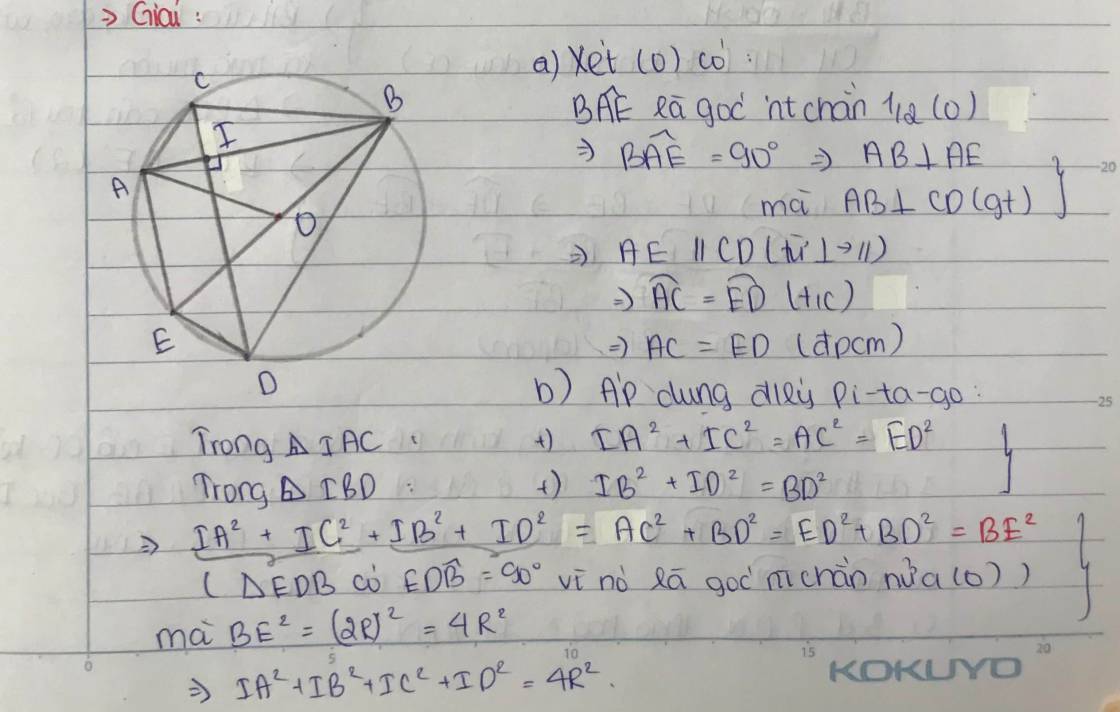 ⇒ Giải :
C
B
I
A
O
E
D
a) Xét (O) có :
BÂE là góc nt chắn 1/2 (O)
⇒ BÂE = 90° ⇒ AB ⊥ AE
mà AB ⊥ CD (gt)
⇒ AE // CD (từ ⊥ → //)
⇒ AC = ED (t/c)
⇒ AC = ED (đpcm)
b) Áp dụng đlý Pi-ta-go :
Trong Δ IAC : +) IA² + IC² = AC² = ED²
Trong Δ IBD : +) IB² + ID² = BD²
⇒ IA² + IC² + IB² + ID² = AC² + BD² = ED² + BD² = BE²
( ΔEDB có EDB = 90° vì nó là góc nt chắn nửa (O) )
mà BE² = (2R)² = 4R²
⇒ IA² + IB² + IC² + ID² = 4R².
20
25
0 5 10 15 20
KOKUYO